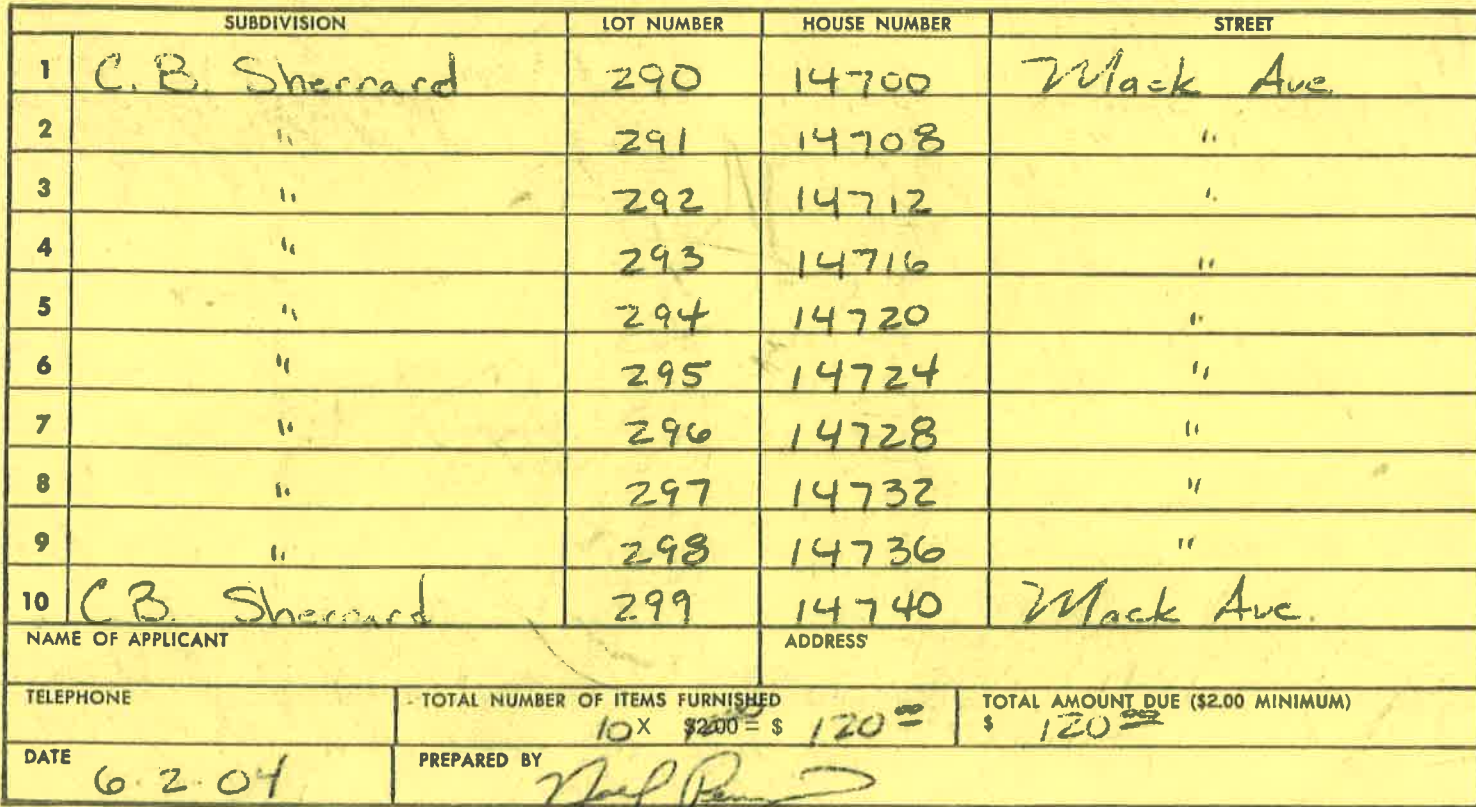 SUBDIVISION LOT NUMBER HOUSE NUMBER STREET
1 C. B. Sherrard 290 14700 Mack Ave.
2 " 291 14708 "
3 " 292 14712 "
4 " 293 14716 "
5 " 294 14720 "
6 " 295 14724 "
7 " 296 14728 "
8 " 297 14732 "
9 " 298 14736 "
10 C B. Sherrard 299 14740 Mack Ave.
NAME OF APPLICANT ADDRESS
TELEPHONE TOTAL NUMBER OF ITEMS FURNISHED TOTAL AMOUNT DUE ($2.00 MINIMUM)
10 X $2.00 = $ 120 00 $ 120 00
DATE PREPARED BY
6.2.04